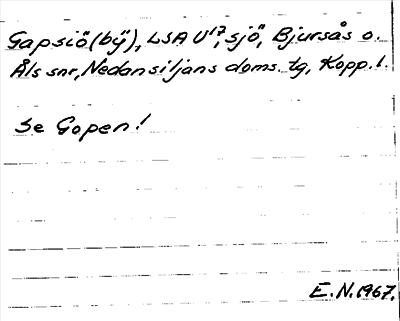 Gapsiö (bÿ), LSA U¹⁷, sjö, Bjursås o.
Åls snr, Nedansiljans doms. tg, Kopp. l.
Se Gopen!
E.N. 1967.